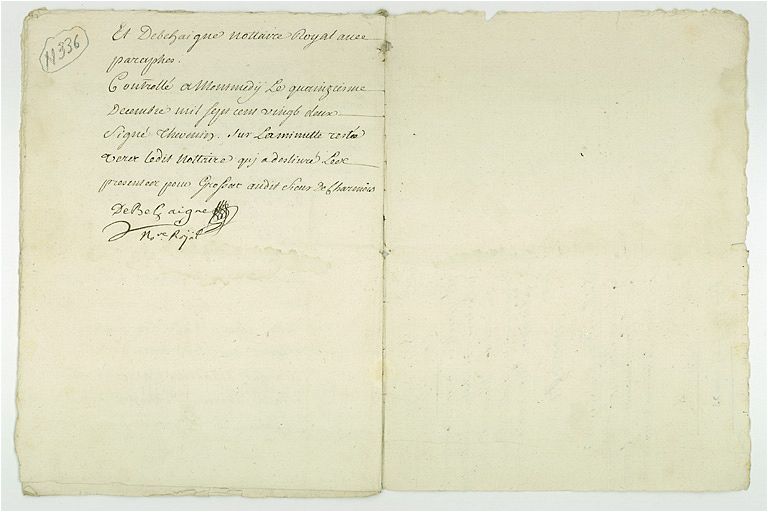 N336
Et Debehaigne nottaire Royal avec
paraphes.
Controllé a Montmedÿ Le quinzieme
Decembre mil sept cent vingt deux
Signé Thevenin. sur La minutte restée
verer ledit Nottaire quj a deslivré Les
presentes pour Grosses audit Sieur de Charmois
DeBehaigne
No.re Roÿal